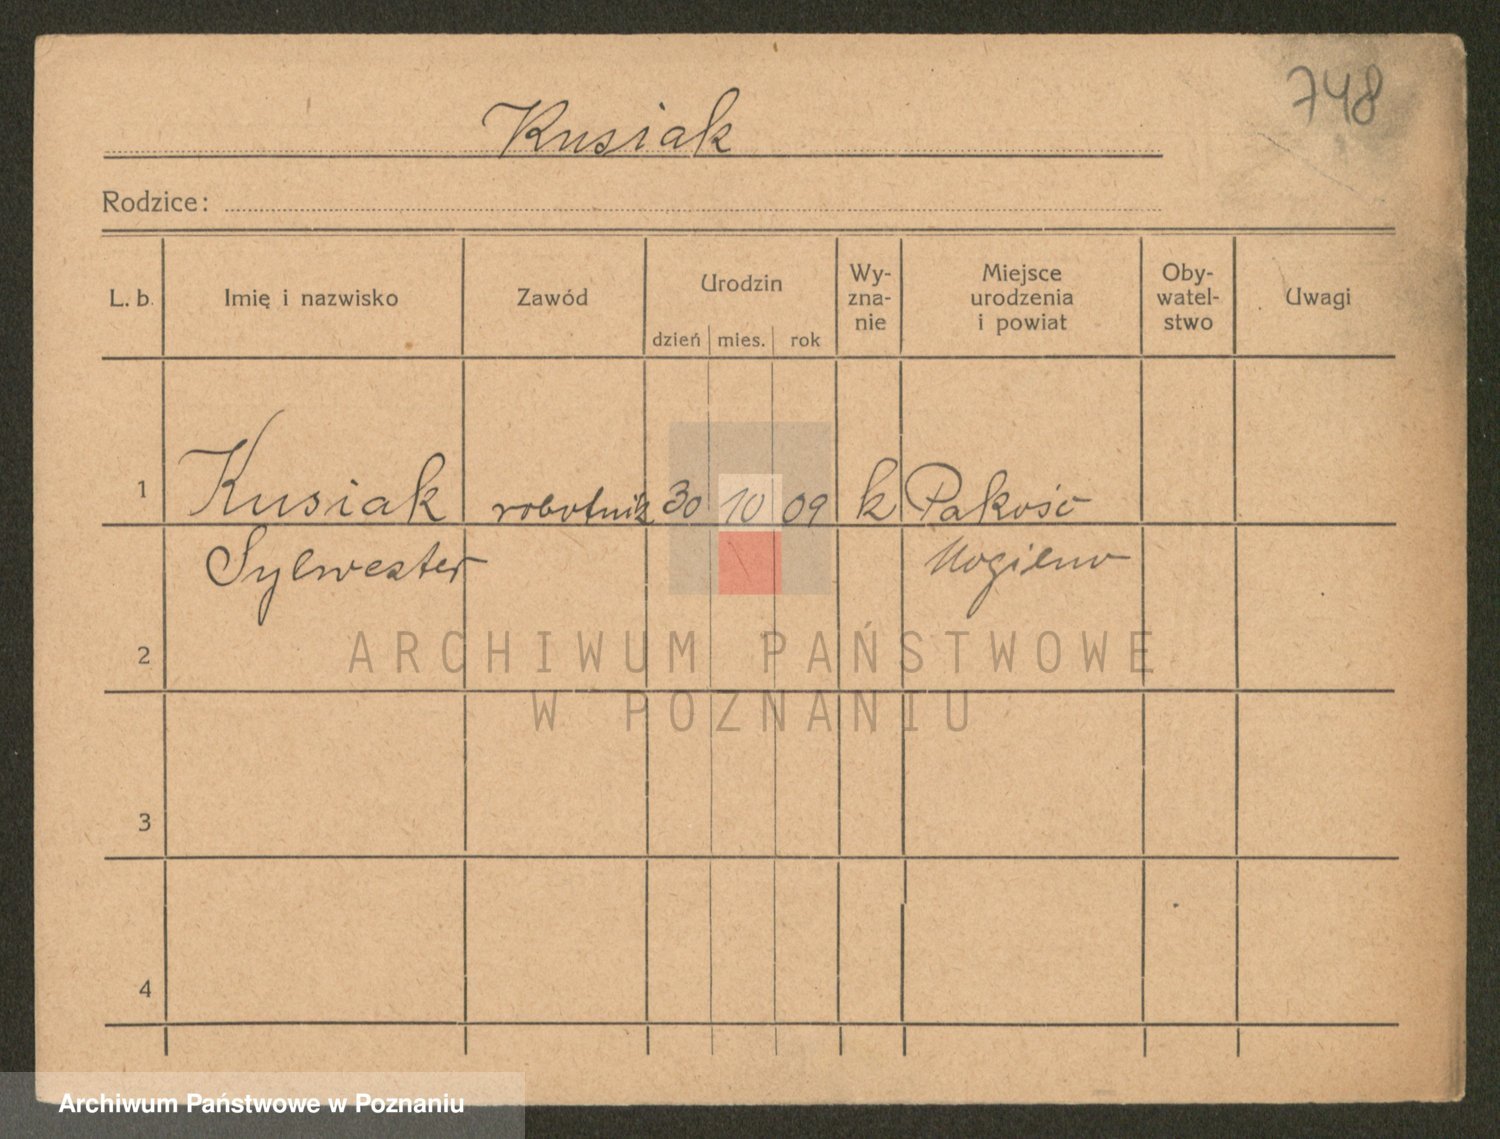 748
Kusiak
Rodzice:
L. b. Imię i nazwisko Zawód Urodzin dzień mies. rok Wy-zna-nie Miejsce urodzenia i powiat Oby-watel-stwo Uwagi
1 Kusiak robotnik 30 10 09 k Pakość
Sylwester Mogilno
2
ARCHIWUM PAŃSTWOWE
W POZNANIU
3
4
Archiwum Państwowe w Poznaniu